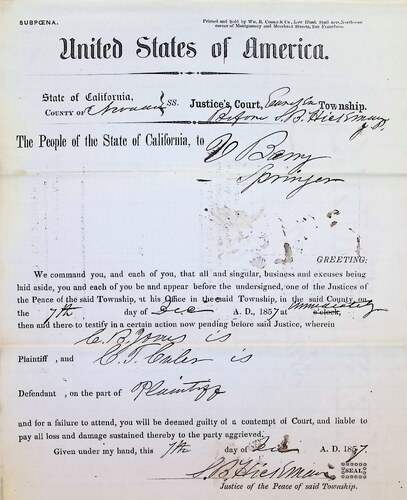 SUBPŒNA.
Printed and Sold by Wm. B. Cooke & Co., Law Blank Stationers, Northeast
corner of Montgomery and Merchant Streets, San Francisco.
United States of America.
State of California,
COUNTY OF ss. Justice's Court, Township.
Before S. B. Hickman
The People of the State of California, to
Barry
Springer
GREETING:
We command you, and each of you, that all and singular, business and excuses being
laid aside, you and each of you be and appear before the undersigned, one of the Justices of
the Peace of the said Township, at his Office in the said Township, in the said County, on
the 7th day of Dec A. D., 1857 at immediately o'clock,
then and there to testify in a certain action now pending before said Justice, wherein
C. B. is
Plaintiff , and C. T. is
Defendant , on the part of Plaintiff
and for a failure to attend, you will be deemed guilty of a contempt of Court, and liable to
pay all loss and damage sustained thereby to the party aggrieved.
Given under my hand, this 7th day of Dec A. D. 1857.
S. B. Hickman SEAL
Justice of the Peace of said Township.